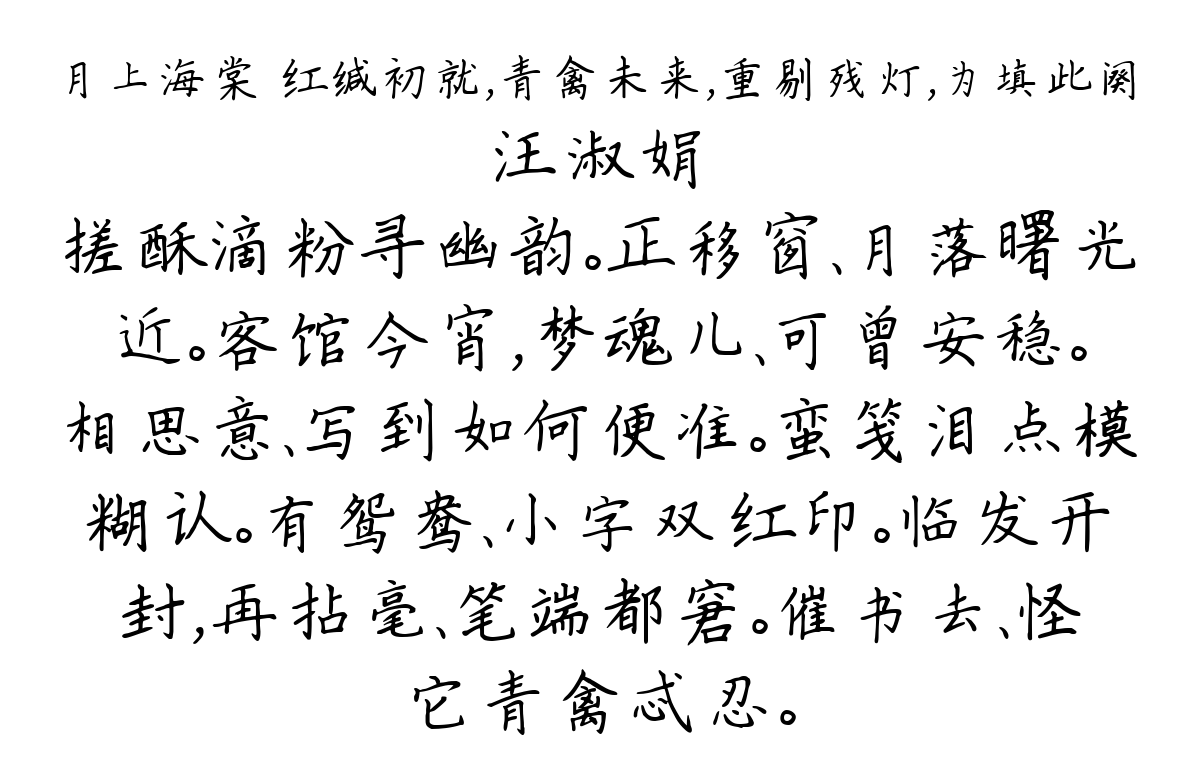 月上海棠 红缄初就,青禽未来,重剔残灯,为填此阕
汪淑娟
搓酥滴粉寻幽韵。正移窗、月落曙光
近。客馆今宵,梦魂儿、可曾安稳。
相思意、写到如何便准。蛮笺泪点模
糊认。有鸳鸯、小字双红印。临发开
封,再拈毫、笔端都窘。催书去、怪
它青禽忒忍。